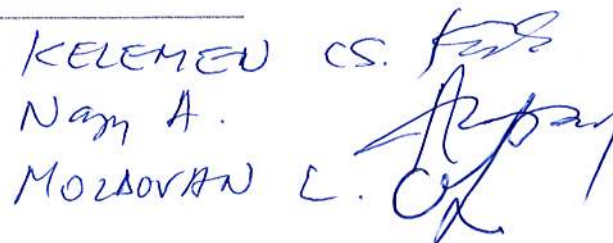 KELEMEN CS.
Nagy A.
MOLDOVAN L.